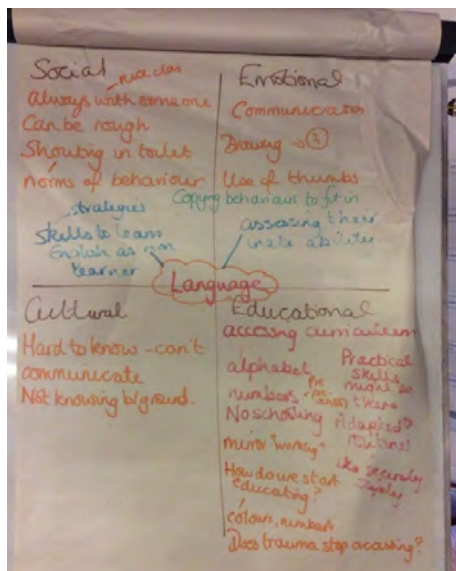 Social
in a class
Always with someone
Can be rough
Shouting in toilet
norms of behaviour
strategies
skills to learn
English as
learner
Emotional
Communication
Drawing → ?
Use of thumbs
Copying behaviours to fit in
assessing their
inate abilities
Language
Cultural
Hard to know - can't
communicate
Not knowing b/ground.
Educational
accessing curriculum
alphabet
numbers
No schooling
mirror "working"
How do we start
educating?
colours, numbers
Does trauma stop accessing?
Practical
skills
might be
there
Adapted
routines
like security